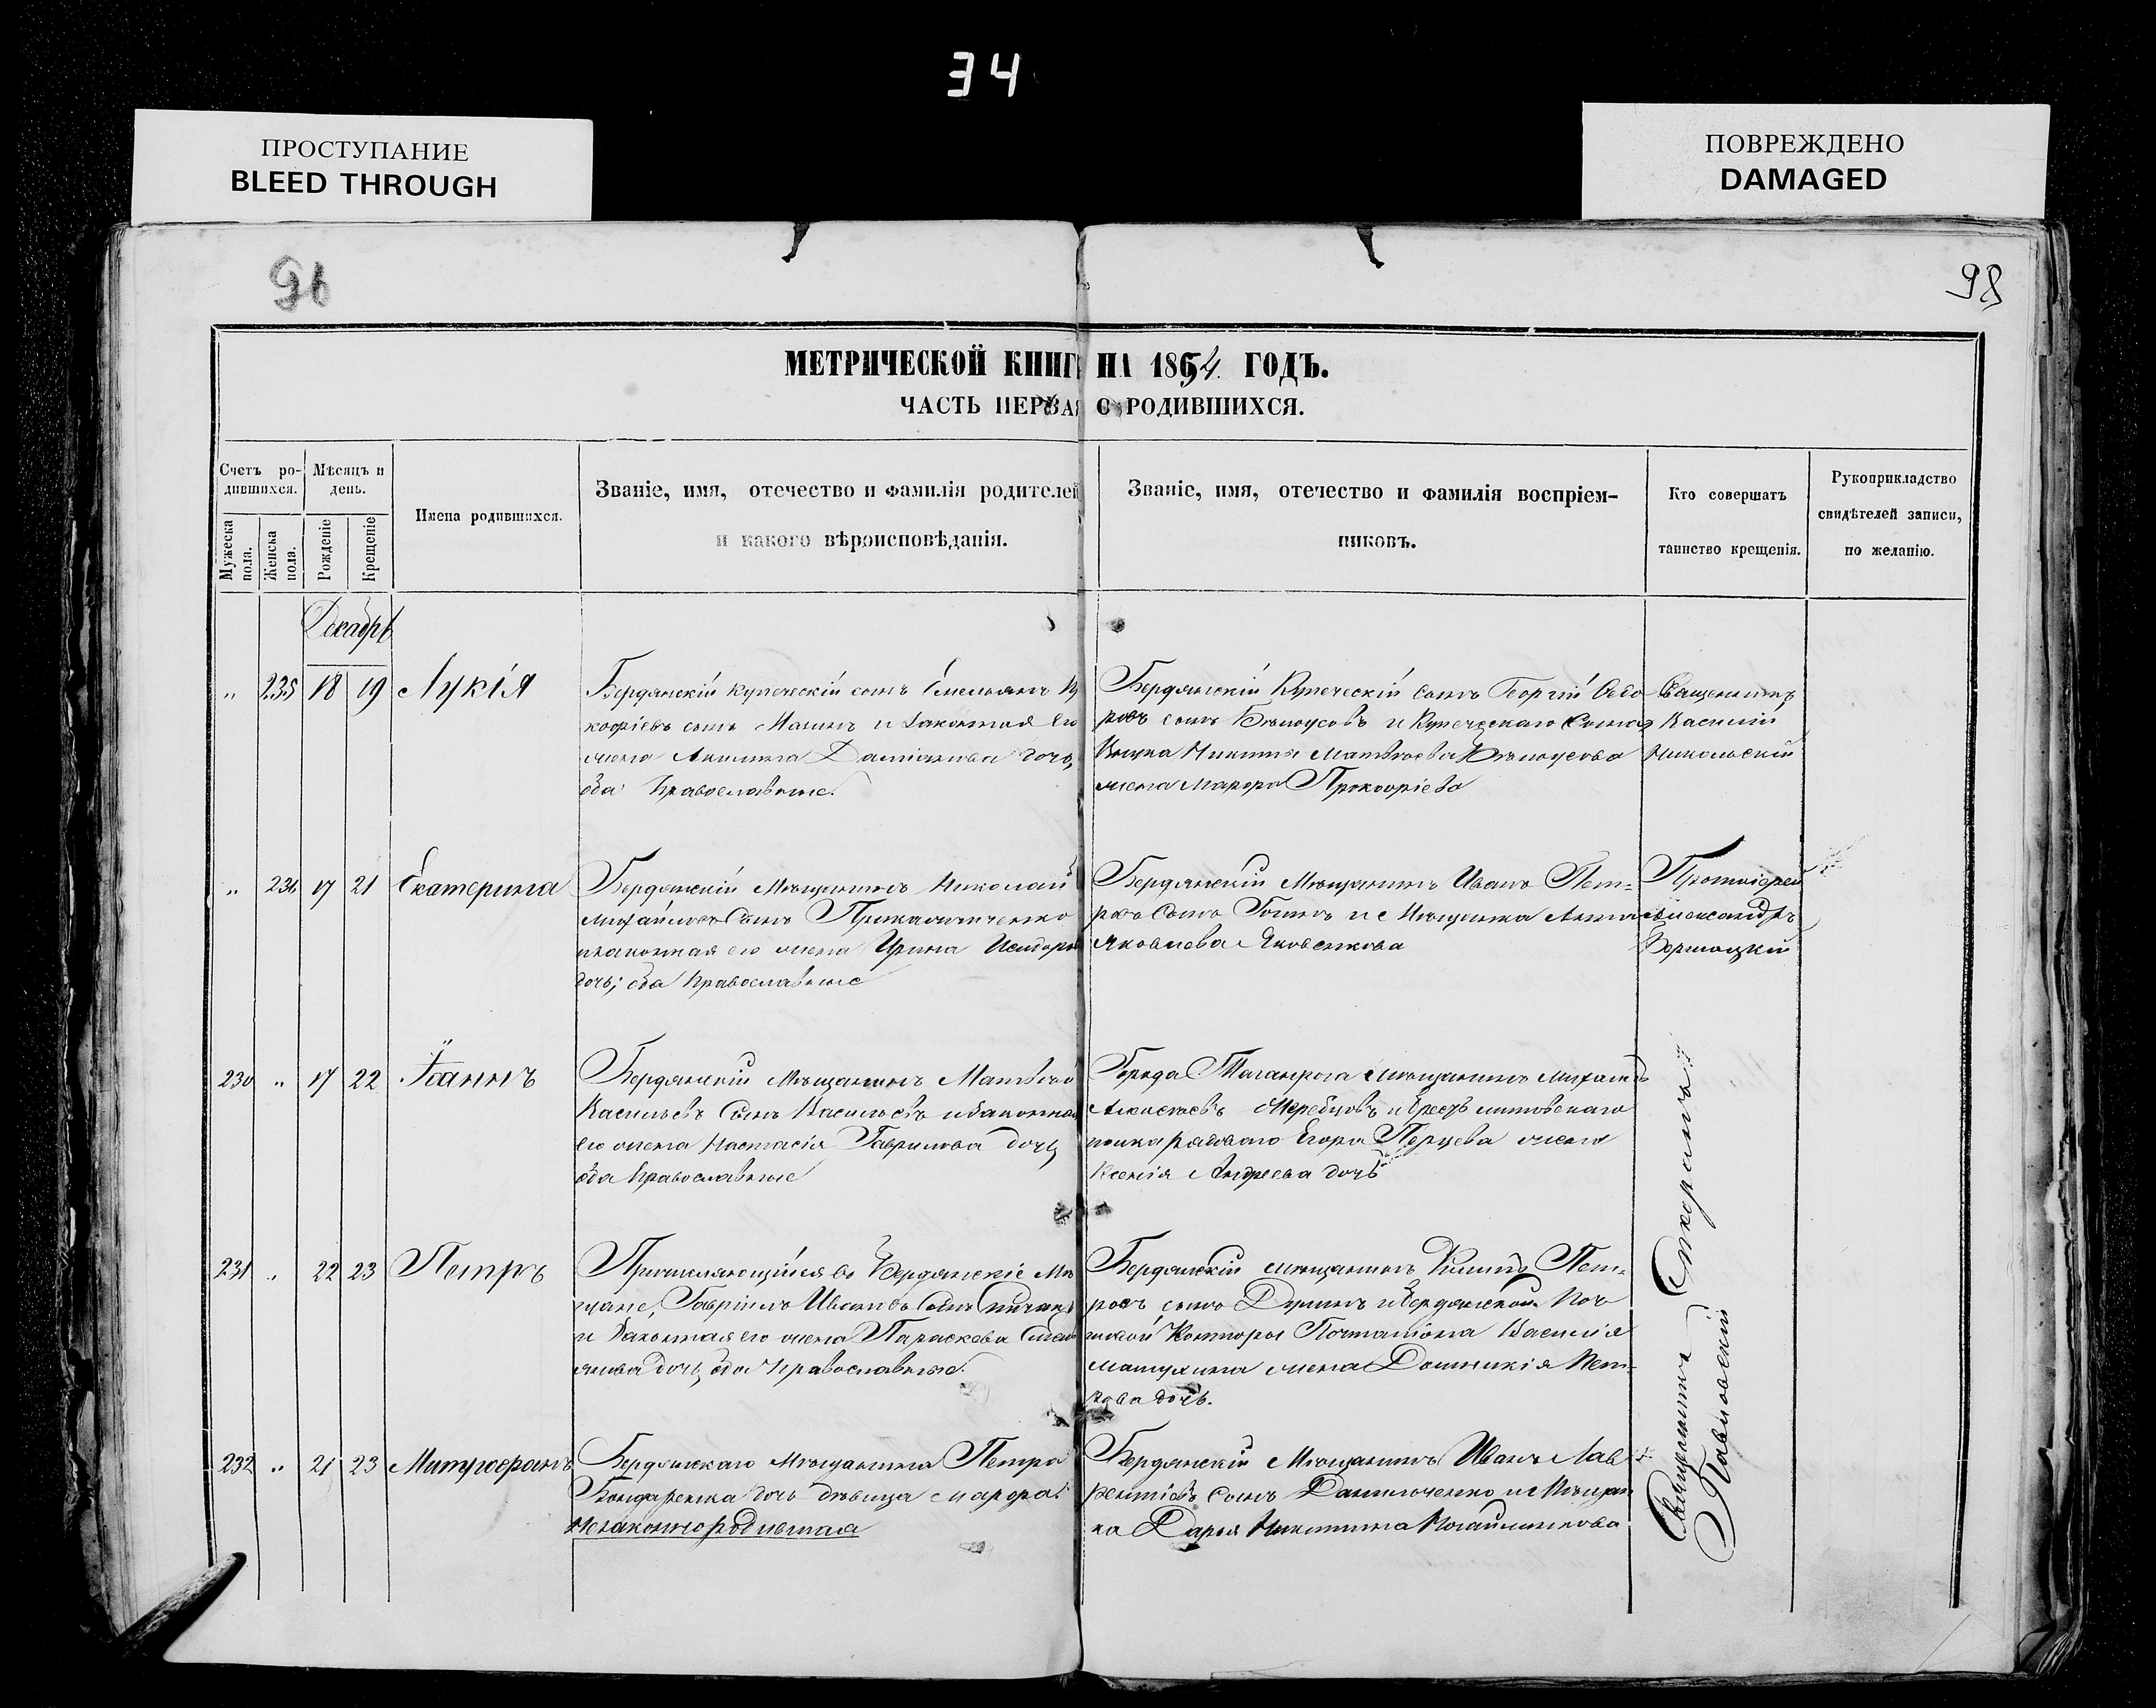 34
ПРОСТУПАНИЕ
BLEED THROUGH
ПОВРЕЖДЕНО
DAMAGED
96
98
МЕТРИЧЕСКОЙ КНИГ НА 1854 ГОДЪ.
ЧАСТЬ ПЕРВАЯ О РОДИВШИХСЯ.
Счетъ ро-
дившихся.
Мѣсяцъ и
день.
Мужеска
пола.
Женска
пола.
Рожденіе
Крещеніе
Имена родившихся.
Званіе, имя, отечество и фамилія родителей
и какого вѣроисповѣданія.
Званіе, имя, отечество и фамилія воспріем-
никовъ.
Кто совершатъ
таинство крещенія.
Рукоприкладство
свидѣтелей записи,
по желанію.
Декабрь
" 235 18 19 Лукія
Бердянскій купеческій сынъ Емельянъ
кофіевъ сынъ и законная его
жена Акилина Даміанова дочь,
оба Православные.
Бердянскій Купеческій сынъ Георгій Ѳедо
ровъ сынъ Бѣлоусовъ и Купеческаго Сына
Никиты Матвѣева Бѣлоусова
жена Марфа Прокофіева
Священникъ
Василій
Никольскій
" 236 17 21 Екатерина
Бердянскій Мѣщанинъ Николай
Михайловъ Сынъ
и законная его жена Ирина Исидоро
дочь; оба Православные
Бердянскій Мѣщанинъ Иванъ Пет-
ровъ Сынъ и Мѣщанка Анна
Яковлева Яковенкова
Протоіерей
Александръ
230 " 17 22 Іоаннъ
Бердянскій Мѣщанинъ Матвѣй
Васильевъ Сынъ Васильевъ и законная
его жена Настасія Гаврилова дочь,
оба Православные
Города Таганрога мѣщанинъ Михаилъ
Алексѣевъ Жеребцовъ и Брестъ литовскаго
полка рядоваго Егора Перцева жена
Ксенія Андреева дочь
231 " 22 23 Петръ
Причисляющійся въ Бердянскіе Мѣ
щане, Гавріилъ Ивановъ Сынъ
и Законная его жена Параскева
янова дочь, оба Православные.
Бердянскій мѣщанинъ Филипъ Пет-
ровъ сынъ и Бердянской Поч
товой Конторы Почталіона Василія
Матухина жена Домникія Пет-
рова дочь.
232 " 21 23 Митрофанъ
Бердянскаго Мѣщанина Петра
Бондаренка дочь дѣвица Марфа.
Незаконнородившая
Бердянскій Мѣщанинъ Иванъ Лав
рентіевъ Сынъ Данильченко и Мѣщан
ка Дарья Никитина
Священникъ
Павловскій